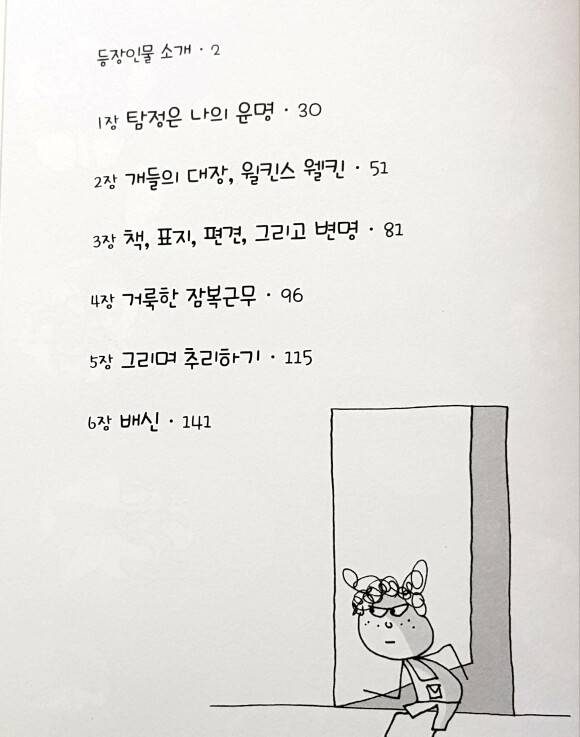 등장인물 소개 · 2
1장 탐정은 나의 운명 · 30
2장 개들의 대장, 윌킨스 웰킨 · 51
3장 책, 표지, 편견, 그리고 변명 · 81
4장 거룩한 잠복근무 · 96
5장 그리며 추리하기 · 115
6장 배신 · 141